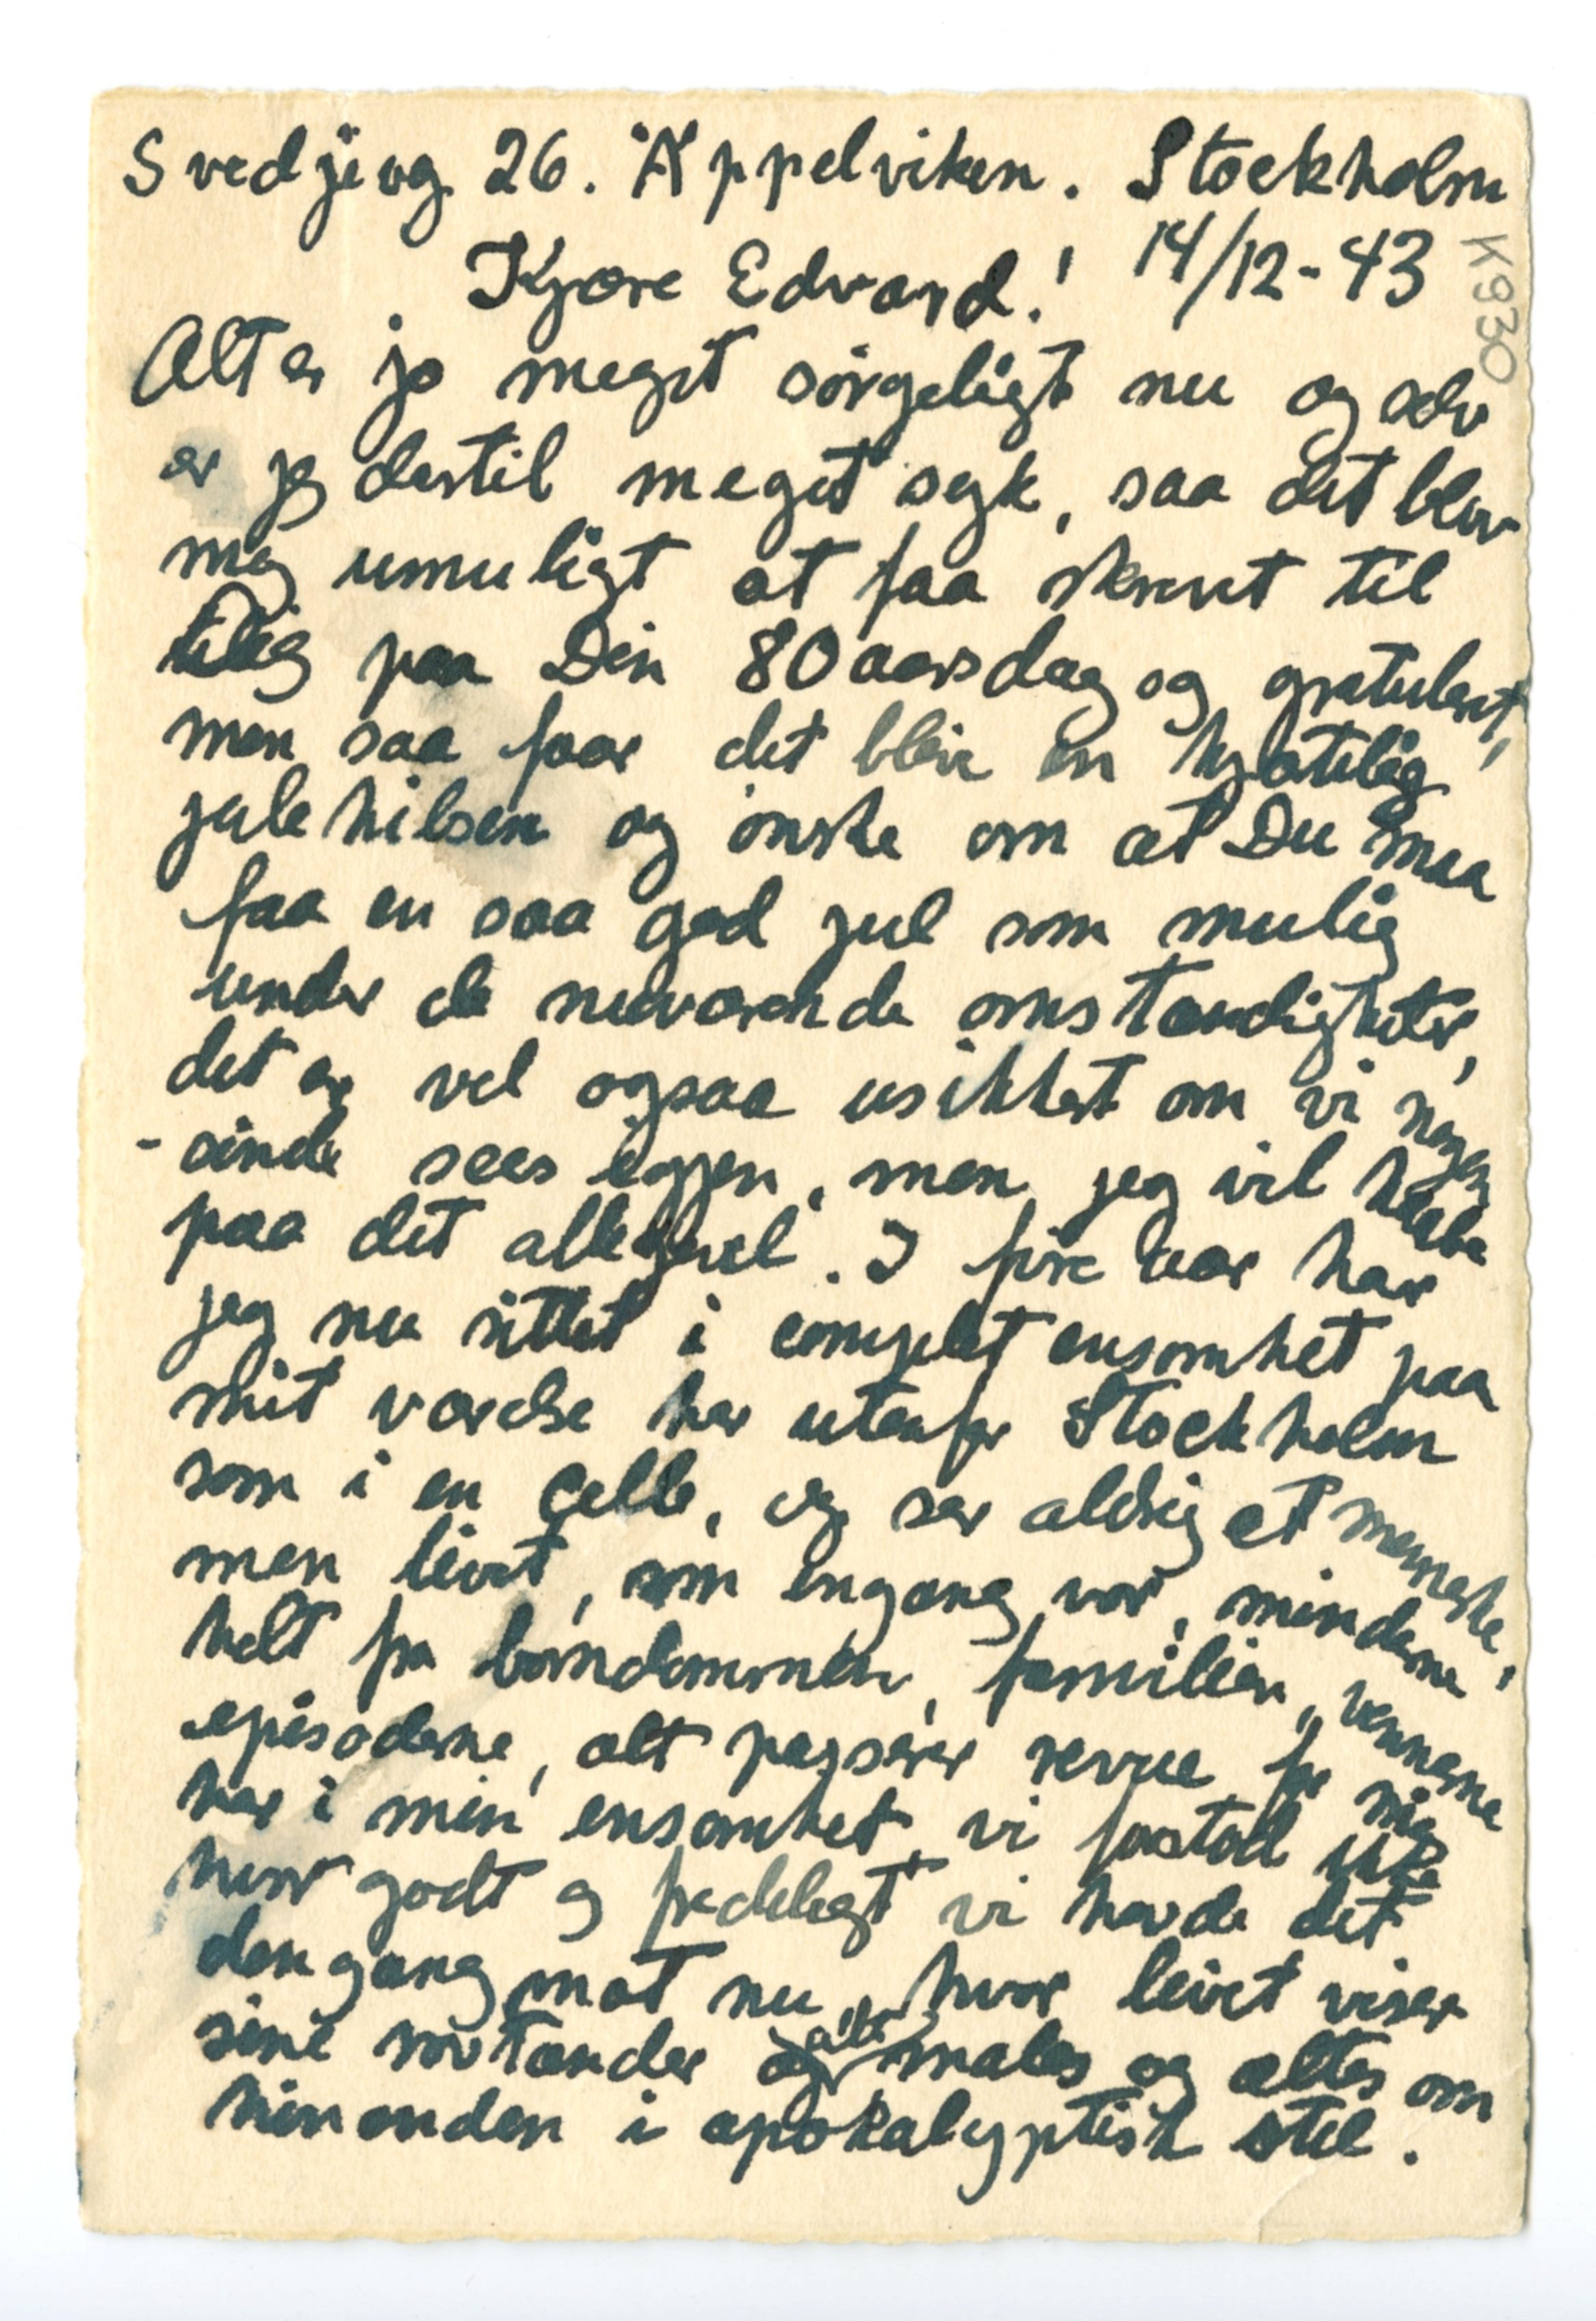 Svedjevg 26. Äppelviken. Stockholm
Kjære Edvard! 14/12-43
K930
Alt er jo meget sørgeligt nu og selv
er jeg dertil meget syk, saa det blev
mig umuligt at faa skrevet til
Dig paa Din 80 aarsdag og gratulert,
men saa faar det blive en hjertelig
julehilsen og ønske om at Du maa
faa en saa god jul som mulig
under de nuværende omstændigheter,
det er vel ogsaa usikkert om vi nogen
-sinde sees igjen, men jeg vil haabe
paa det allikevel. I fire aar har
jeg nu sittet i complet ensomhet paa
mit værelse her utenfor Stockholm
som i en celle, og ser aldrig et menneske,
men livet, som engang var, minderne
helt fra barndommen, familien, vennerne
episoderne, alt passerer revue for mig
her i min ensomhet, vi forstod ikke
hvor godt og fredeligt vi havde det
dengang mot nu, hvor livet viser
sine rovtænder og alt males og æltes om
hinanden i apokalyptisk stil.